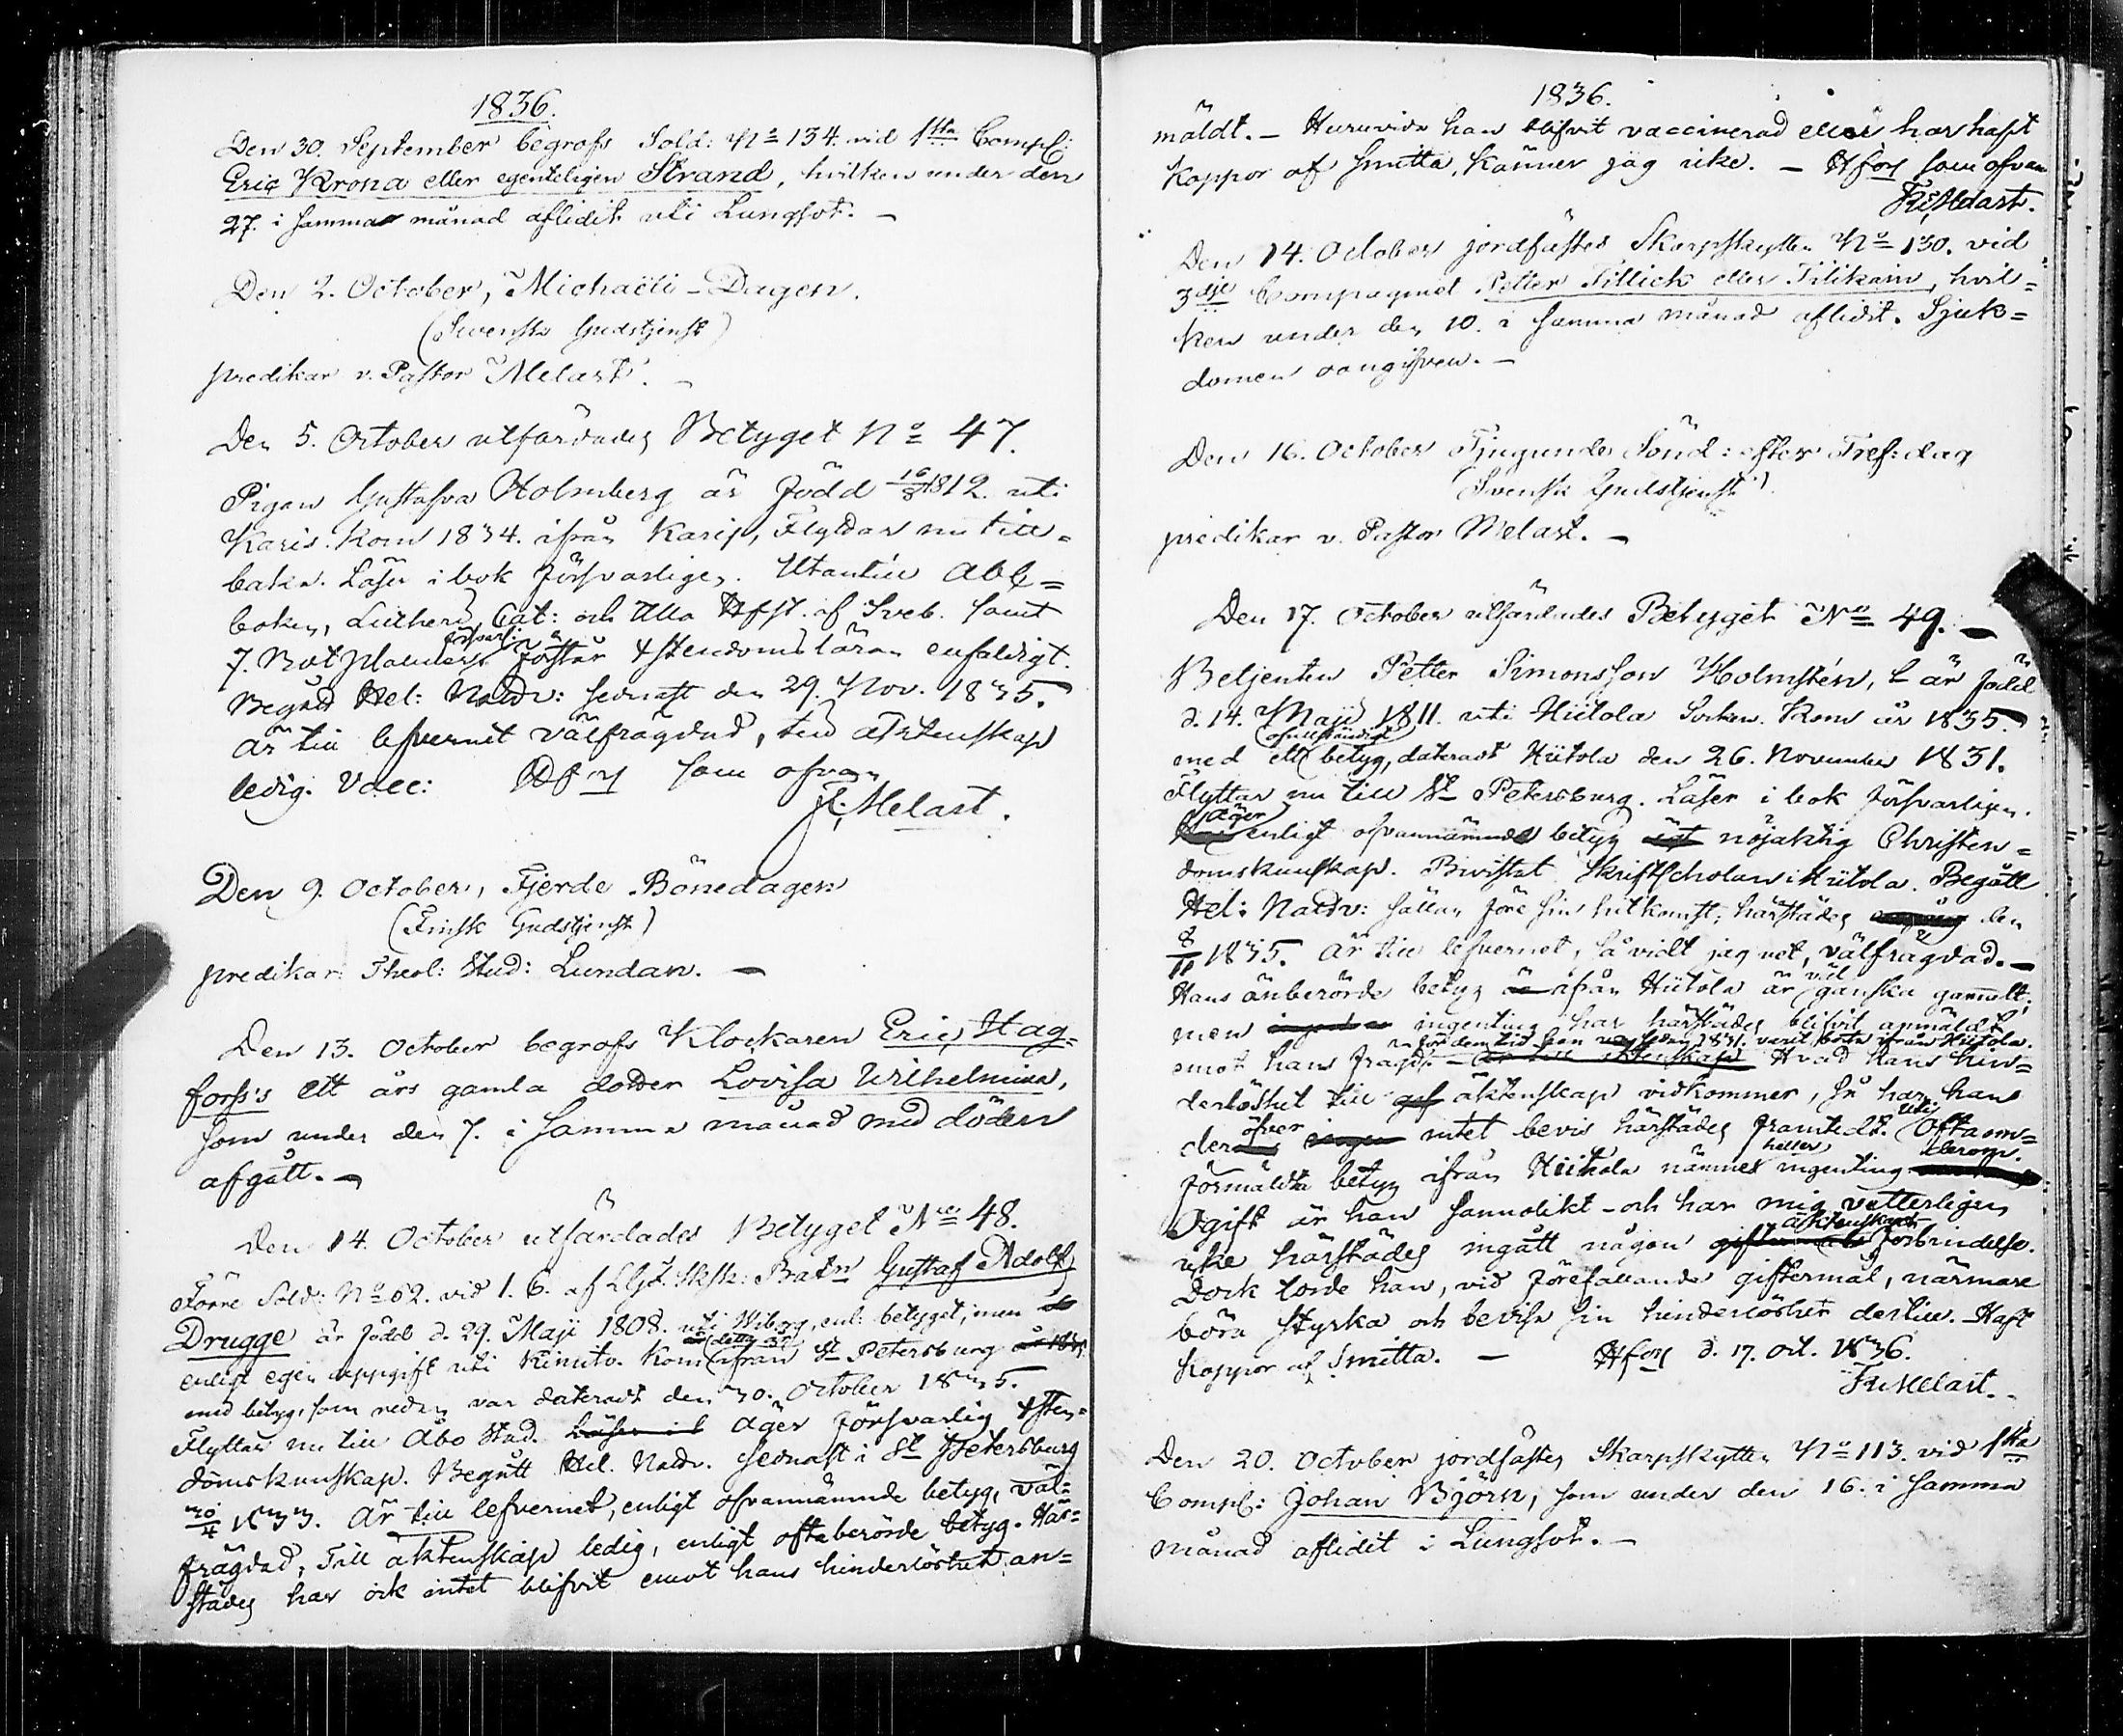 1836.
Den 30. September begrofs Sold: No 134. vid 1sta Comp:
Eric Krona eller egenteligen Strand, hvilken under den
27. i samma månad aflidit uti Lungsot. –
Den 2. October, Michaëli-Dagen.
(Svensk Gudstjenst)
predikar v. Pastor Melart. –
Den 5. October utfärdades Betyget No 47.
Pigan Gustafva Holmberg är född 16/8 1812. uti
Karis. Kom 1834. ifrån Karis, Flyttar nu till-
baka. Läser i bok försvarligen. Utantill Abc-
boken, Lutheri Cat: och Alla Hfst. af Sveb. samt
försvarl:
7. Botpsalmer. Förstår Xstendomsläran enfaldigt.
Begått Hel: Nattv: sednast den 29. Nov. 1835.
Är till lefvernet välfrägdad, till äktenskap
ledig. Vacc: Hfors som ofvan
Fr. Melart.
Den 9. October, Fjerde Bönedagen
(Finsk Gudstjenst)
predikar: Theol: Stud: Lundan. –
Den 13. October begrofs Klockaren Eric Hag-
forss's ett års gamla dotter Lovisa Wilhelmina,
som under den 7. i samma månad med döden
afgått. –
Den 14. October utfärdades Betyget No 48.
Förre Sold: No 62. vid 1. C. af LGd. Sksk: Batn Gustaf Adolf
Drugge är född d. 29. Maji 1808. uti Wiborg, enl: betyget; men
enligt egen uppgift uti Kimito. Kom detta år ifrån St Petersburg
med betyg, som redan var dateradt den 30. October 1835.
Flyttar nu till Åbo Stad. Läser i b Äger försvarlig Xsten-
domskunskap. Begått Hel. Nattv. sednast i St Petersburg
30/4 1833. Är till lefvernet, enligt ofvannämnde betyg, väl-
frägdad; Till äktenskap ledig, enligt oftaberörde betyg. Här-
städes har ock intet blifvit emot hans hinderlöshet an-
1836.
mäldt. – Huruvida han blifvit vaccinerad eller har haft
koppor af smitta, känner jag icke. – Hfors som ofvan
Fr. Melart.
Den 14. October jordfästes Skarpskytten No 130. vid
3dje Compagniet Petter Tillich eller Tilikain, hvil-
ken under den 10. i samma månad aflidit. Sjuk-
domen oangifven. –
Den 16. October Tjugunde Sönd: efter Tref:dag
(Svensk Gudstjenst)
predikar v. Pastor Melart. –
Den 17. October utfärdades Betyget No 49. –
Betjenten Petter Simonsson Holmstén, är född
d. 14. Maji 1811. uti Hiitola Socken. Kom år 1835.
ofullständigt
med ett betyg, dateradt Hiitola den 26. November 1831.
Flyttar nu till St Petersburg. Läser i bok försvarligen.
äger
enligt ofvannämnde betyg nöjaktig Christen-
domskunskap. Bivistat Skriftscholan i Hiitola. Begått
Hel: Nattv: sällan före sin hitkomst; härstädes den
8/11 1835. Är till lefvernet, så vidt jag vet, välfrägdad. –
Hans änberörde betyg ifrån Hiitola är väl ganska gammalt;
men ingenting har härstädes blifvit anmäldt
för den tid han sedan 1831. varit borta ifrån Hiitola.
emot hans frägd är till äktenskap Hvad hans hin-
derlöshet till äktenskap vidkommer, så har han
deröfver intet bevis härstädes framtedt. Uti Oftaom-
förmäldta betyg ifrån Hiitola nämnes heller ingenting derom.
Ogift är han sannolikt – och har mig vetterligen
icke härstädes ingått någon äktenskaps förbindelse.
Dock torde han, vid förefallande giftermål, närmare
böra styrka och bevisa sin hinderlöshet dertill. Haft
koppor af Smitta. – Hfors d. 17. Oct. 1836.
Fr. Melart.
Den 20. October jordfästes Skarpskytten No 113. vid 1sta
Comp: Johan Björn, som under den 16. i samma
månad aflidit i Lungsot. –